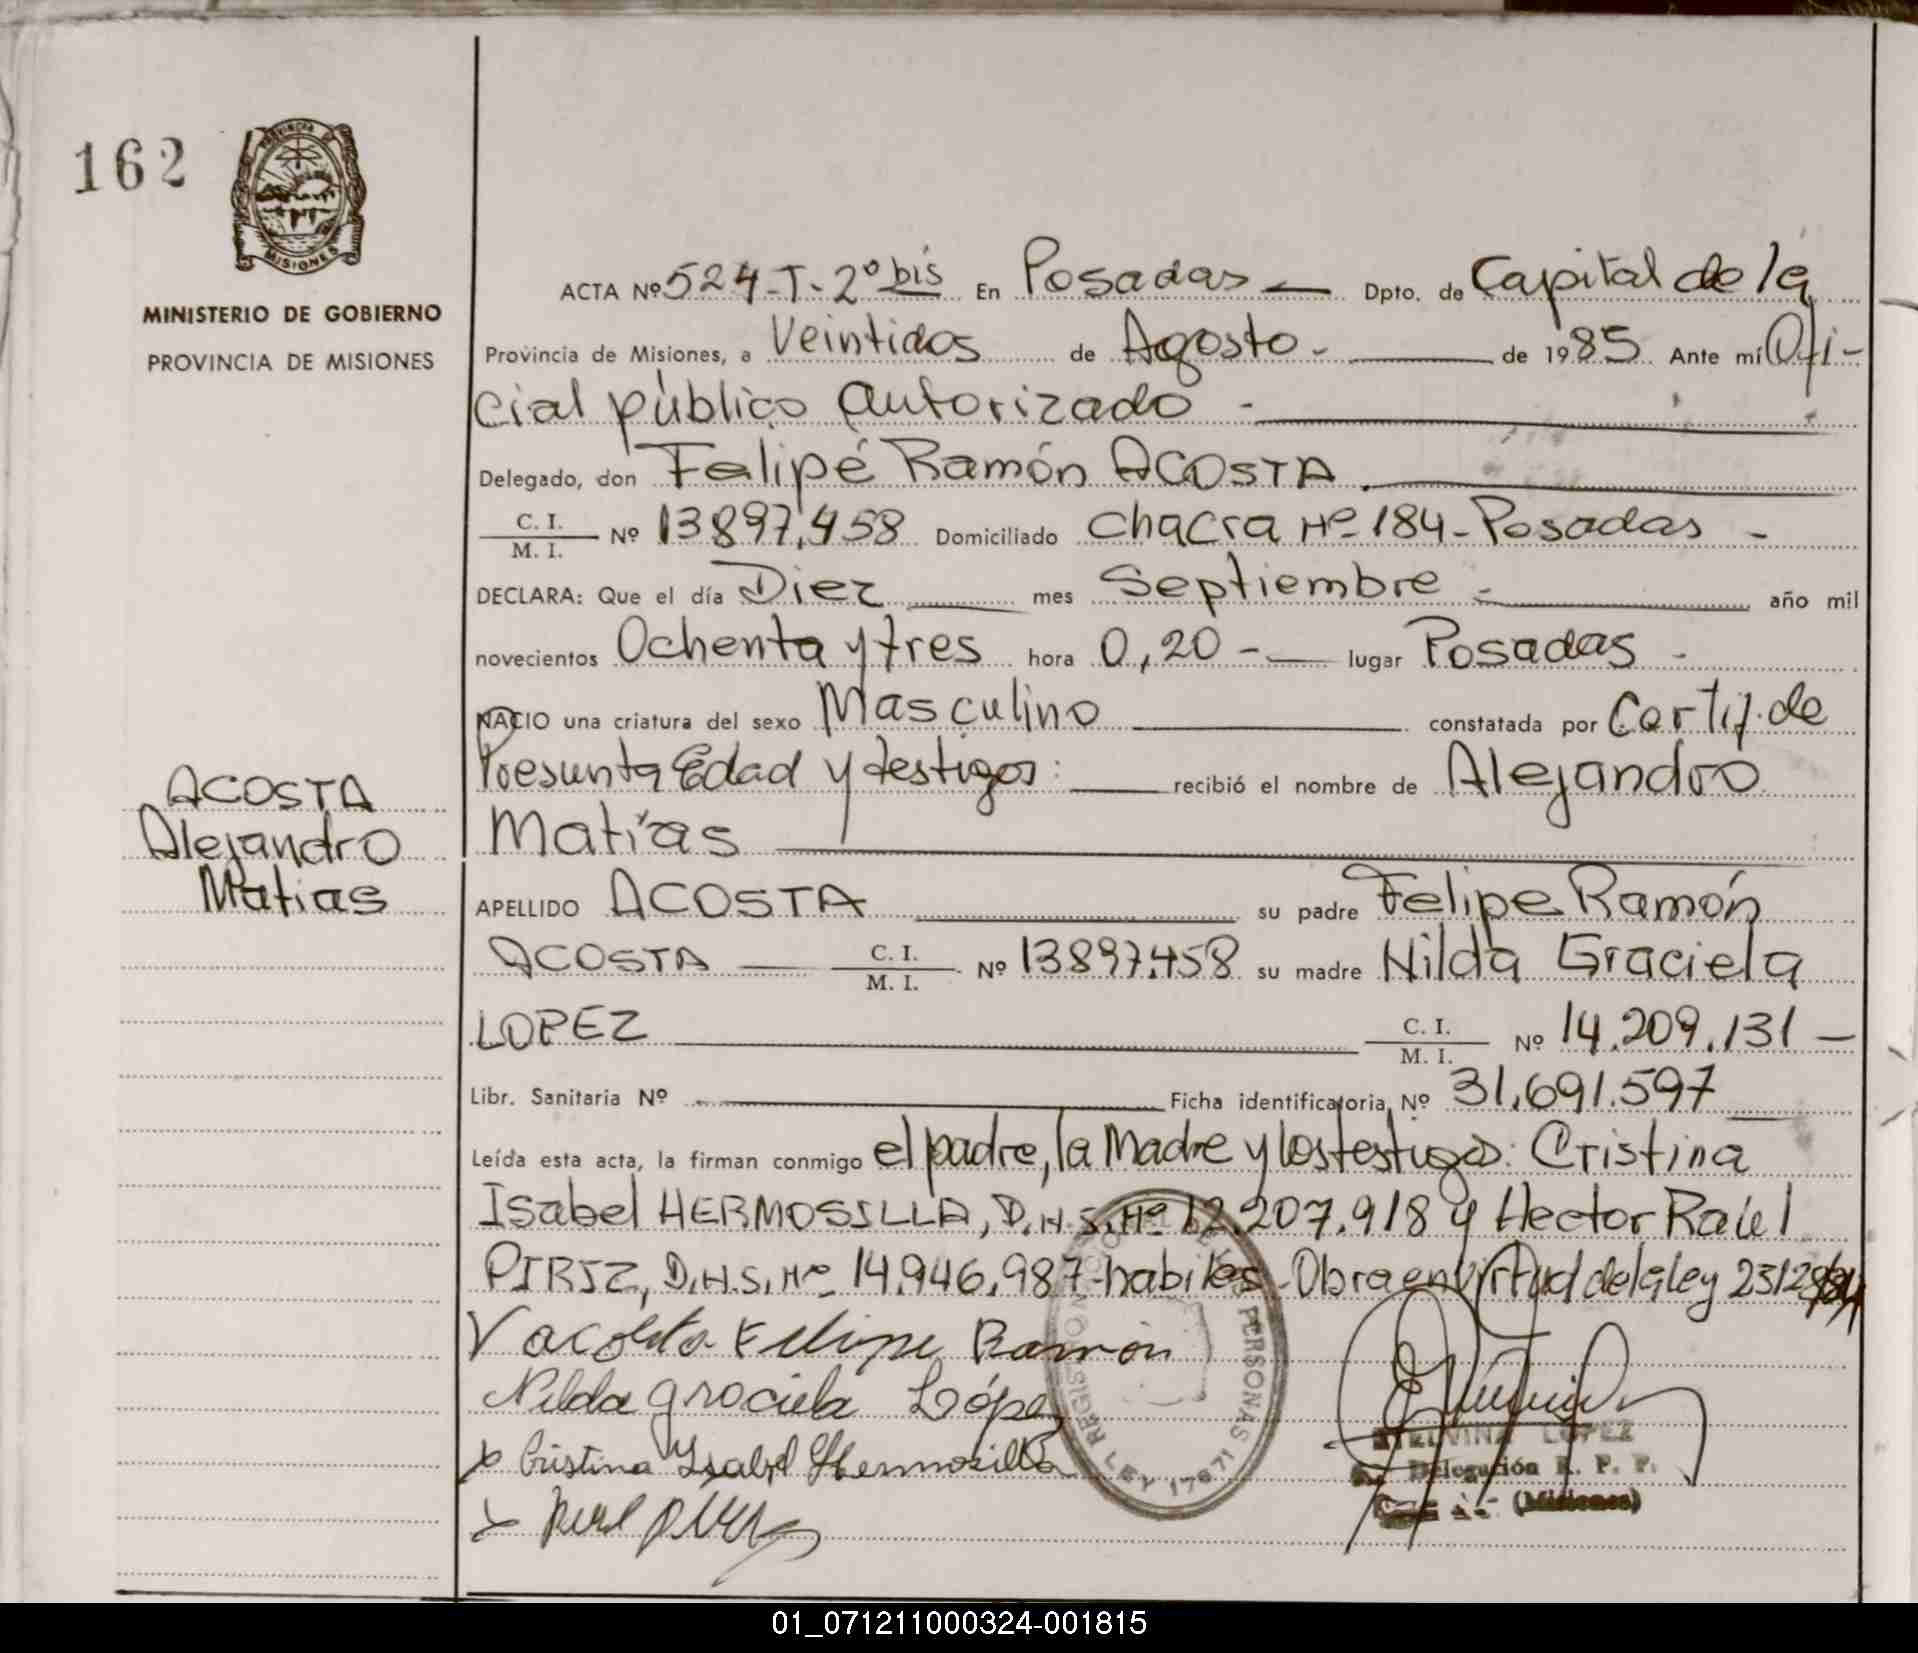 162
PROVINCIA DE
MISIONES
MINISTERIO DE GOBIERNO
PROVINCIA DE MISIONES
ACTA Nº 524-T-2º bis En Posadas — Dpto. de Capital de la
Provincia de Misiones, a Veintidos de Agosto - de 1985 Ante mí Ofi-
cial público autorizado -
Delegado, don Felipé Ramón ACOSTA.
C. I.
M. I. Nº 13897.458 Domiciliado Chacra Nº 184-Posadas -
DECLARA: Que el día Diez mes Septiembre - año mil
novecientos Ochenta y tres hora 0,20 - lugar Posadas -
NACIO una criatura del sexo Masculino constatada por Certif. de
Presunta Edad y testigos: recibió el nombre de Alejandro
Matías
ACOSTA
Alejandro
Matias
APELLIDO ACOSTA su padre Felipe Ramón
ACOSTA — C. I.
M. I. Nº 13897.458 su madre Nilda Graciela
LOPEZ C. I.
M. I. Nº 14.209.131 —
Libr. Sanitaria Nº Ficha identificatoria Nº 31.691.597
Leída esta acta, la firman conmigo el padre, la Madre y los testigos: Cristina
Isabel HERMOSILLA, D.N.S. Nº 12.207.918 y Hector Raúl
PIRIZ, D.N.S. Nº 14.946.987-habiles-Obra en virtud de la ley 23128/84
Acosta Felipe Ramón
Nilda Graciela López
x Cristina Ysabel Hermosilla
REGISTRO PERSONAS LEY 17671
ETELVINA LOPEZ
Delegación R. P. P.
(Misiones)
01_071211000324-001815